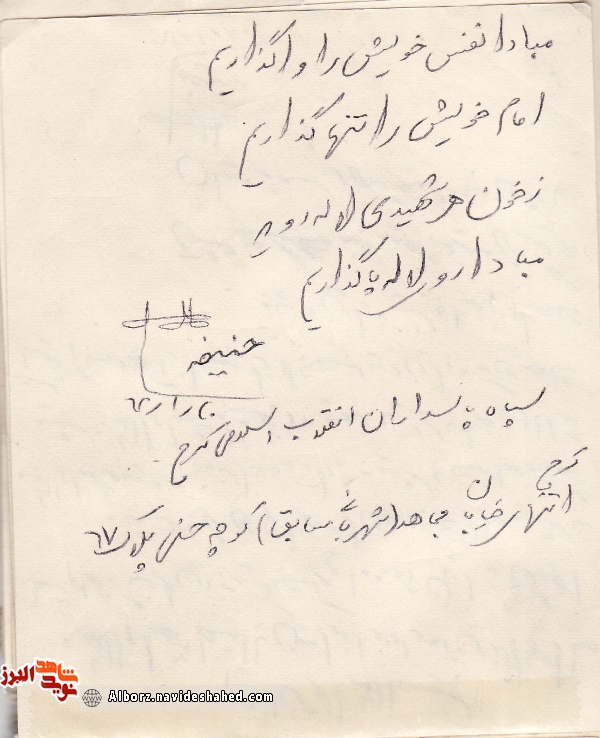 مبادا نفس خویش را واگذاریم
امام خویش را تنها گذاریم
ز خون هر شهیدی لاله روید
مبادا روی لاله پا گذاریم
حنیفه
سپاه پاسداران انقلاب اسلامی کرج
کرج
انتهای خیابان مجاهد (شهربانی سابق) کوچه حسنی پلاک ۶۷
شاهد
نوید
البرز
Alborz.navideshahed.com